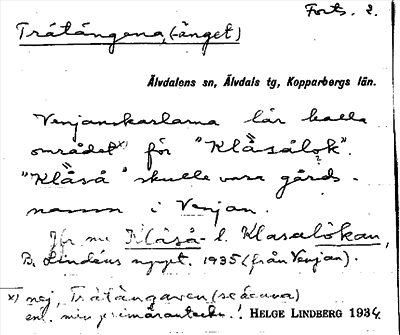 Forts. 2.
Trätängena, (-änget)
Älvdalens sn, Älvdals tg, Kopparbergs län.
Venjanskarlarna lär kalla
området x) för "Klåsålok".
"Klåså" skulle vara gårds-
namn i Venjan.
Jfr nu Klåså- l. Klasalökan,
B. Lindéns uppt. 1935 (från Venjan).
x) nej, Trätängaren
enl. min primäranteckn.! HELGE LINDBERG 1934